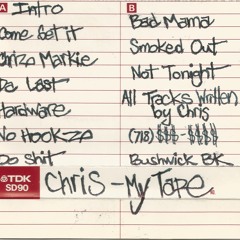 A
Intro
Come Get it
Chrizo Markie
Da Last
Hardware
No Hookzo
Do Shit
B
Bad Mama
Smoked Out
Not Tonight
All Tracks Written
by Chris
(718) $$$-$$$$
Bushwick BK
TDK
SD90
Chris - My Tape